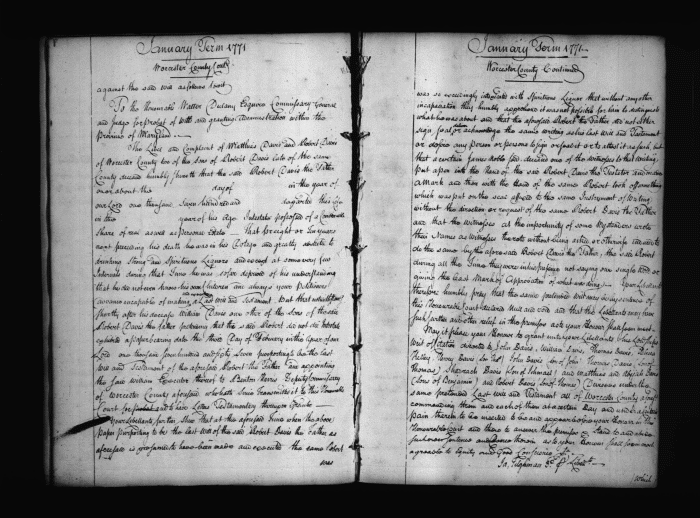 January Term 1771
Worcester County Court
against the said will as follows to wit
To the Honorable Walter Dulany Esquire Commissary General
and Judge for probat of wills and granting administration within the
Province of Maryland
The Libel and Complaint of Matthias Davis and Robert Davis
of Worcester County two of the sons of Robert Davis late of the same
County deceased humbly sheweth that the said Robert Davis the Father
on or about the day of in the year of
our Lord one thousand Seven hundred and departed this Life
in the year of his age Intestate possessed of a Considerable
Share of real as well as personal Estate That for eight or ten years
next preceeding his death he was in his Dotage and greatly addicted to
drinking Strong and Spirituous Liquors and except at some very few
Intervals during that time he was so far deprived of his understanding
that he did not even know his own Interest and always your petitioners
became uncapable of making a Last will and Testament. But that notwithstanding
shortly after his decease William Davis one other of the Sons of the said
Robert Davis the father pretending that the said Robert did not die Intestate
exhibited a paper bearing date the third Day of February in the year of our
Lord one thousand seven hundred and fifty Seven purporting to be the last
Will and Testament of the aforesaid Robert the Father and appointing
the said William Executor thereof to Benton Harris Deputy Commissary
of Worcester County aforesaid who hath Since transmitted it to this Honorable
Court for probat and to have Letters Testamentary thereupon Granted
Your Libellants further Shew that at the aforesaid time when the above
paper purporting to be the last will of the said Robert Davis the Father as
aforesaid is pretended to have been made and executed the said Robert
was
January Term 1771
Worcester County Continued
was so exceedingly intoxicated with Spirituous Liquor that without any other
incapacities they humbly apprehend it was not possible for him to distinguish
what he was about and that the aforesaid Robert the Father did not either
sign seal or acknowledge the same writing as his last will and Testament
or desire any person or persons to sign or subscribe or to attest it as such, but
that a certain James deceased one of the witnesses to that writing
put a pen into the Hand of the said Robert Davis the Testator and made
a Mark and then with the Hand of the same Robert took off something
which was put on the seal affixed to the same Instrument of writing
without the direction or request of the same Robert Davis the Father
and that the witnesses at the importunity of some By standers wrote
their Names as witnesses thereto without being asked or otherwise desired to
do the same by the aforesaid Robert Davis the Father, the said Robert
during all the time they were in that passing not saying one single word or
giving the least Mark of Approbation of what was doing Your Libellants
therefore humbly pray that the same pretended will may be in pursuance of
this Honourable Court declared Null and void and that the Libellants may have
such further and other relief in the premises as to your Honour shall seem meet.
May it please your Honour to grant unto your Libellants the
writ of citation directed to John Davis, William Davis, Thomas Davis,
John Davis Son of John Thomas Davis
Thomas Davis
(Sons of Benjamin) and Robert Davis Son of Thomas) Devisees under the
same pretended Last will and Testament all of Worcester County
commanding them and each of them at a certain Day and under a certain
pain therein to be inserted to be and appear before your Honour in this
Honourable Court and there to answer the premises & stand to and abide
such order sentence and decree therein as to your Honour shall seem most
agreeable to equity and Good Conscience &c
Ja. Tilghman
which